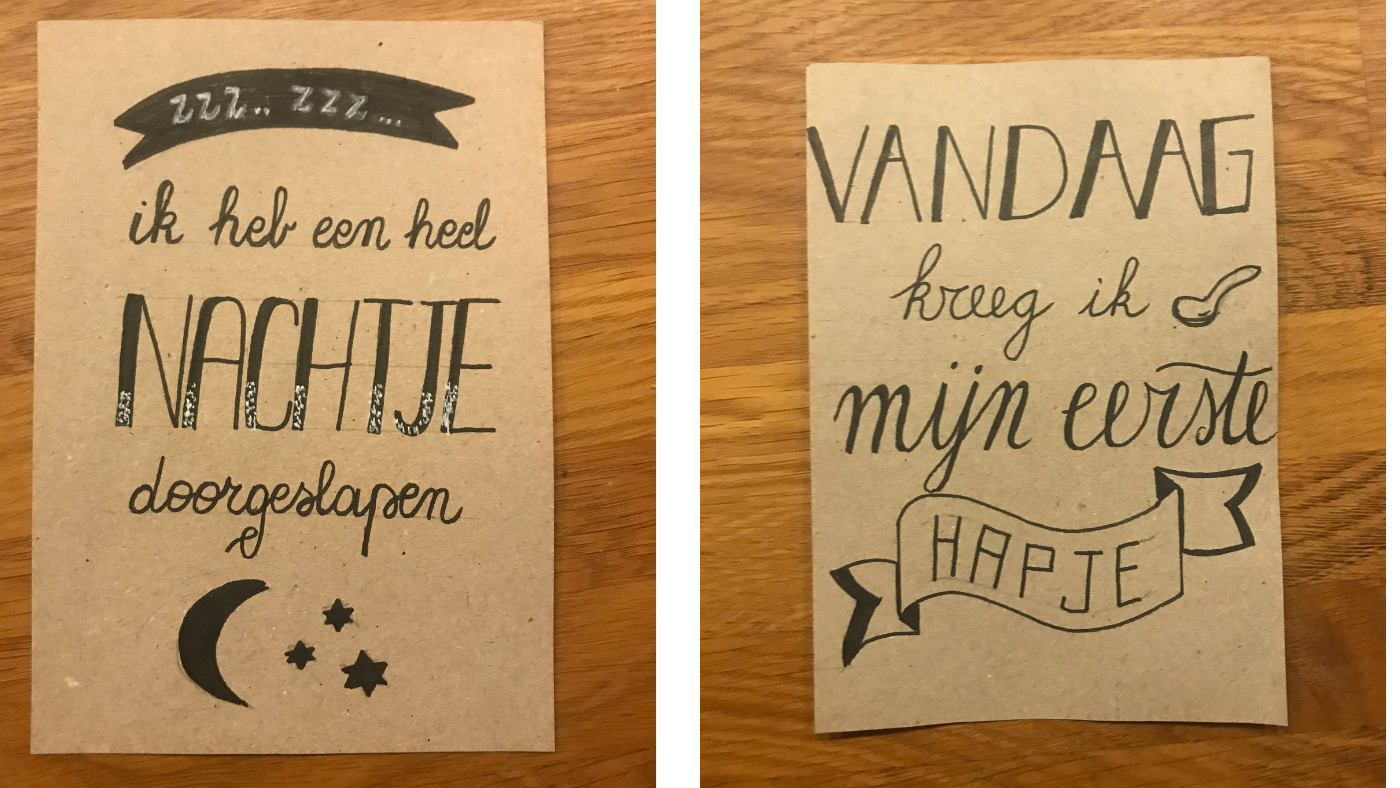 zzz.. zzz...
ik heb een heel
NACHTJE
doorgeslapen
VANDAAG
kreeg ik
mijn eerste
HAPJE